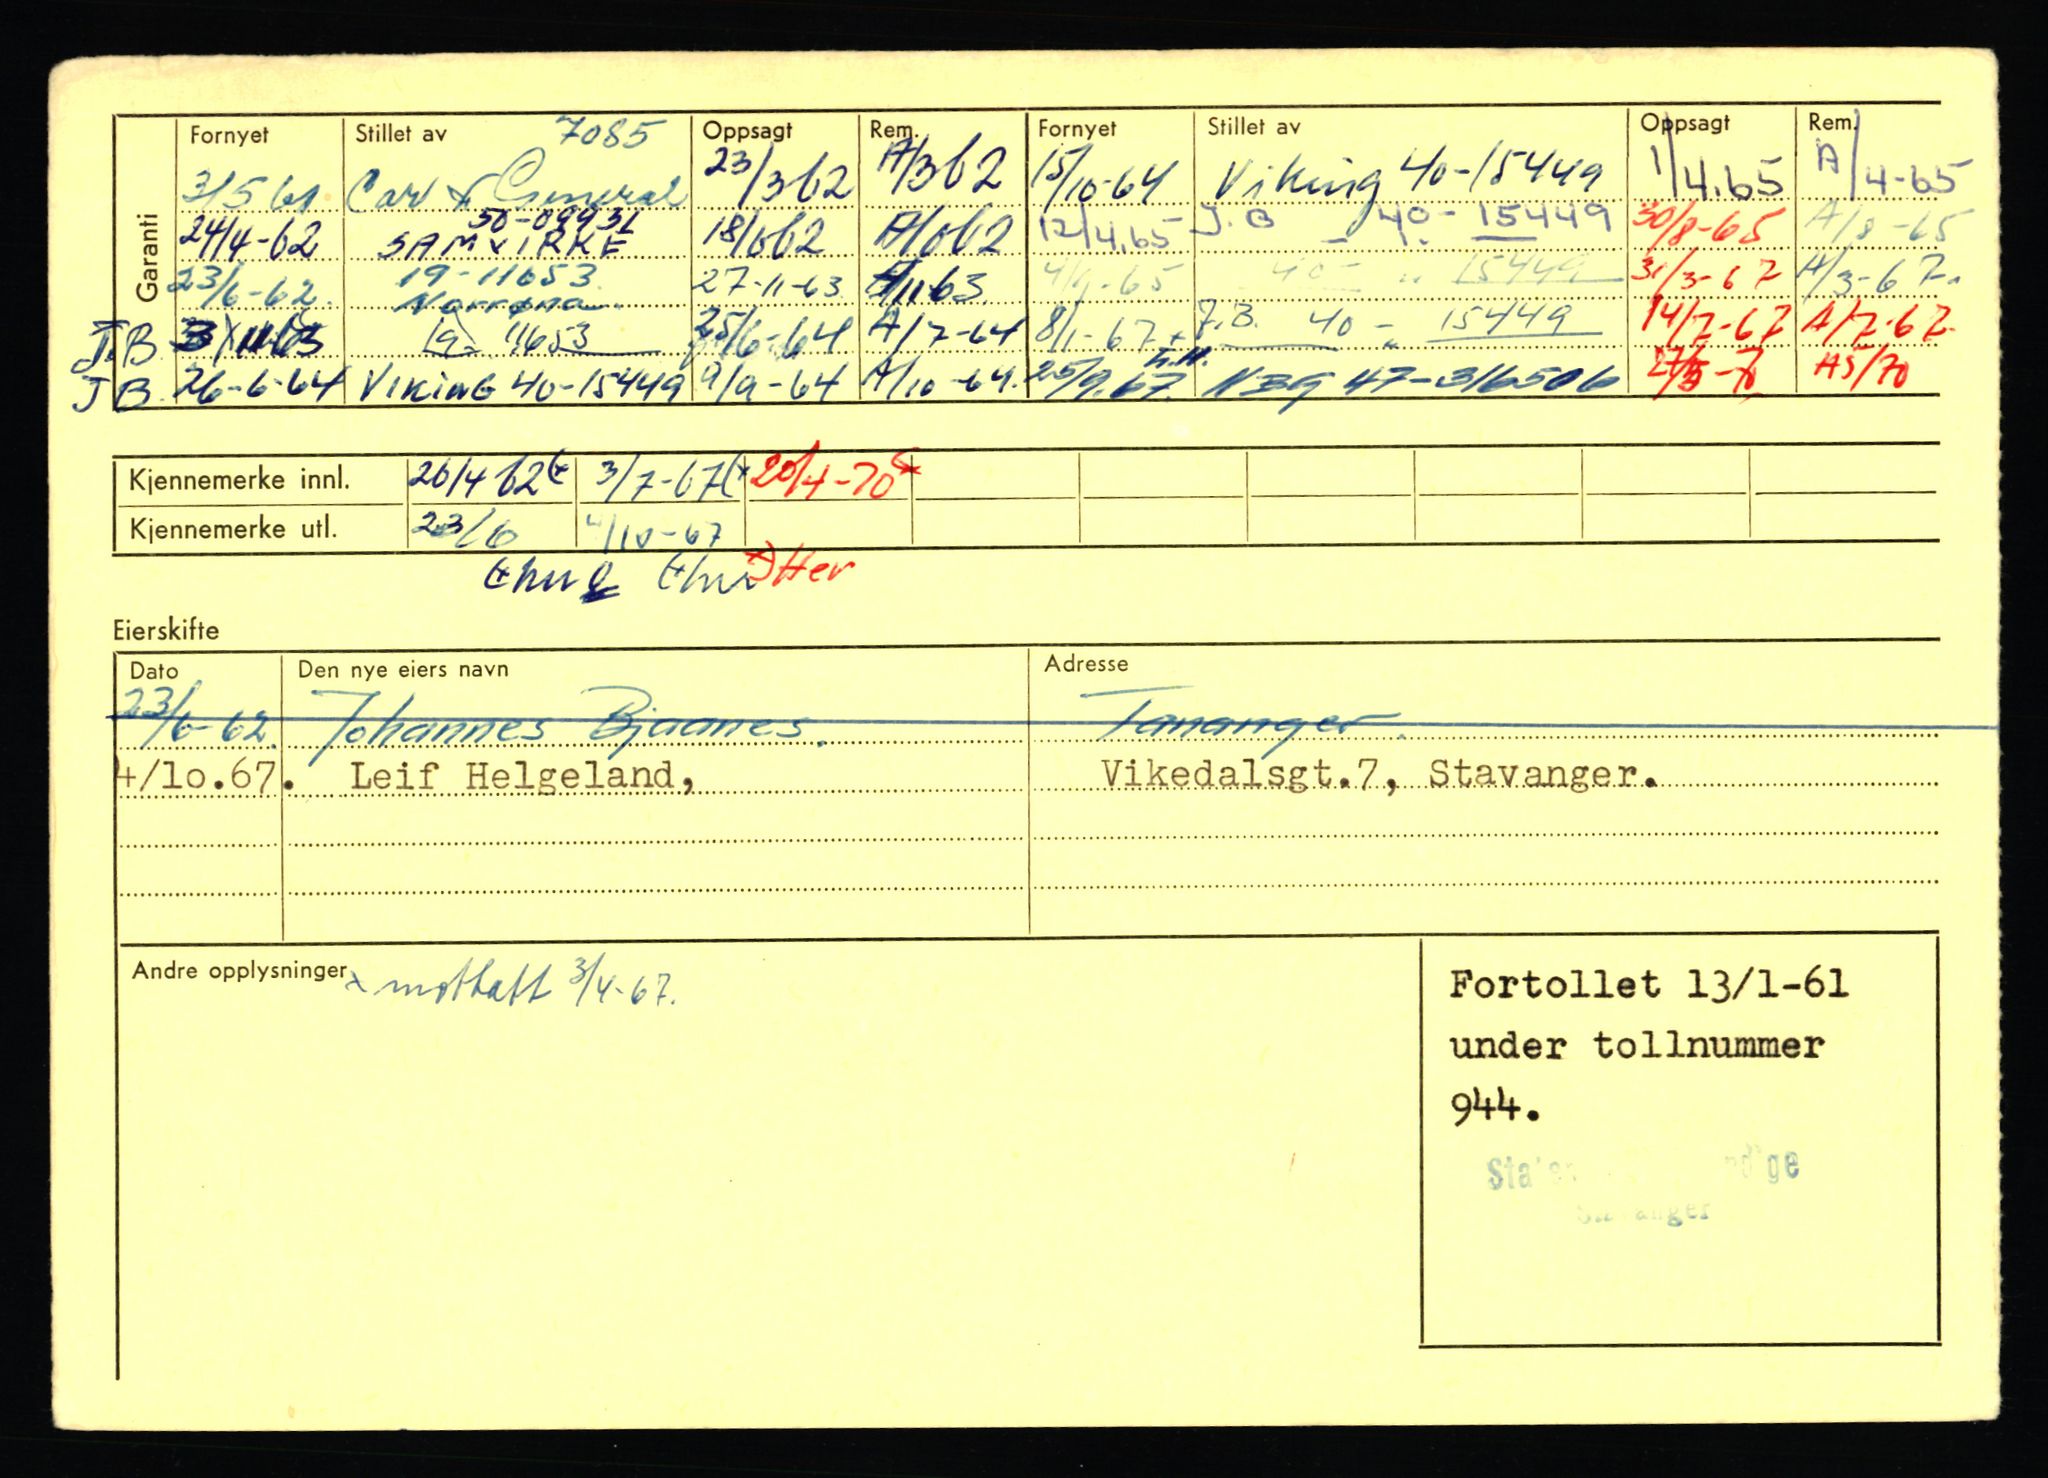 Garanti
Fornyet Stillet av 7085 Oppsagt Rem. Fornyet Stillet av Oppsagt Rem.
3/5 61 Car & General 23/3 62 A/3 62 15/10-64 Viking 40-15449 1/4.65 A/4-65
24/4-62 50-09931 SAMVIRKE 18/6 62 A/6 62 12/4.65 J.B - 40 - 15449 30/8-65 A/8-65
23/6-62. 19-11653. Norrøna 27-11-63. A/11 63. 4/9-65 40- " 15449 31/3-67 A/3-67.
J.B 19- 11653 25/6-64 A/7-64 8/1-67 x J.B. 40 - " 15449 14/7-67 A/7-67.
J B 26-6-64 VIKING 40-15449 9/9-64 A/10-64. 25/9.67. 47-316506 A5/70
Kjennemerke innl. 26/4 62 (x 3/7-67 (x 20/4-70 x
Kjennemerke utl. 23/6 4/10-67
x) Her
Eierskifte
Dato Den nye eiers navn Adresse
23/6-62. Johannes Bjaanes. Tananger.
4/10.67. Leif Helgeland, Vikedalsgt.7, Stavanger.
Andre opplysninger x mottatt 3/4-67.
Fortollet 13/1-61
under tollnummer
944.
Stavanger